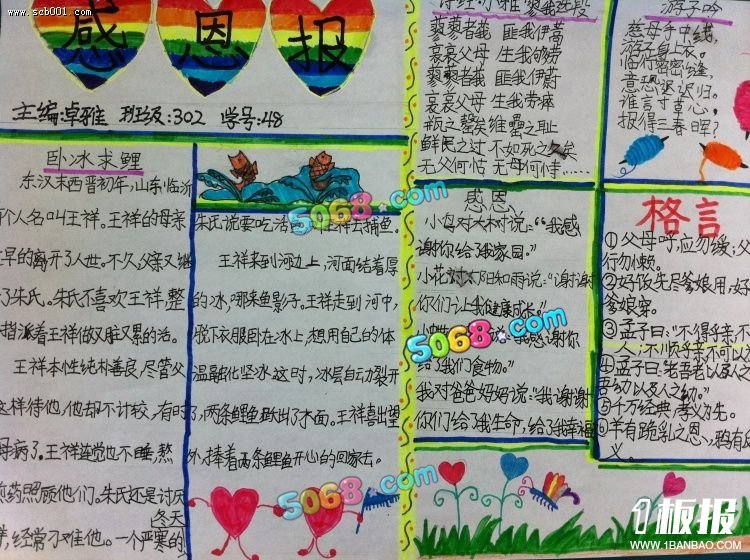 www.scb001.com
感恩报
主编:卓雅 班级:302 学号:48
卧冰求鲤
东汉末西晋初年,山东临沂
个人名叫王祥。王祥的母亲
早的离开了人世。不久,父亲又继
了朱氏。朱氏不喜欢王祥,整
指派着王祥做又脏又累的活。
王祥本性纯朴善良,尽管父
这样待他,他却不计较,有时
母病了。王祥连觉也不睡,熬
药照顾他们。朱氏还是讨厌
经常刁难他。一个严寒的
冬天
朱氏说要吃活 王祥去捕鱼。
王祥来到河边上,河面结着厚
的冰,哪来鱼影子。王祥走到河中,
脱下衣服卧在冰上,想用自己的体
温融化坚冰。这时,冰层自动裂开
了,两条鲤鱼跃出了水面。王祥喜出望
外,捧着两条鲤鱼开心的回家去。
诗经·小雅·蓼莪选段
蓼蓼者莪 匪我伊蒿
哀哀父母 生我劬劳
蓼蓼者莪 匪我伊蔚
哀哀父母 生我劳瘁
瓶之罄矣 维罍之耻
鲜民之过 不如死之久矣
无父何怙 无母何恃……
游子吟
慈母手中线,
游子身上衣。
临行密密缝,
意恐迟迟归。
谁言寸草心,
报得三春晖?
感恩
小鸟对大树说:“我感
谢你给了我家园。”
小花对太阳和雨说:“谢谢
你们让我健康成长。”
说:“我感谢你
给了我们食物。”
我对爸爸妈妈说:“我谢谢
你们给了我生命,给了我幸福
格言
①父母呼,应勿缓;父
行勿懒。
②好饭先尽爹娘用,好
爹娘穿。
③孟子曰:“不得乎亲,不
人;不顺乎亲,不可以
④孟子曰:老吾老以及人之
吾幼以及人之幼。
⑤千万经典,孝义为先。
羊有跪乳之恩,鸦有
义。
5068.com
5068.com
5068.com
5068.com
1板报
WWW.1BANBAO.COM